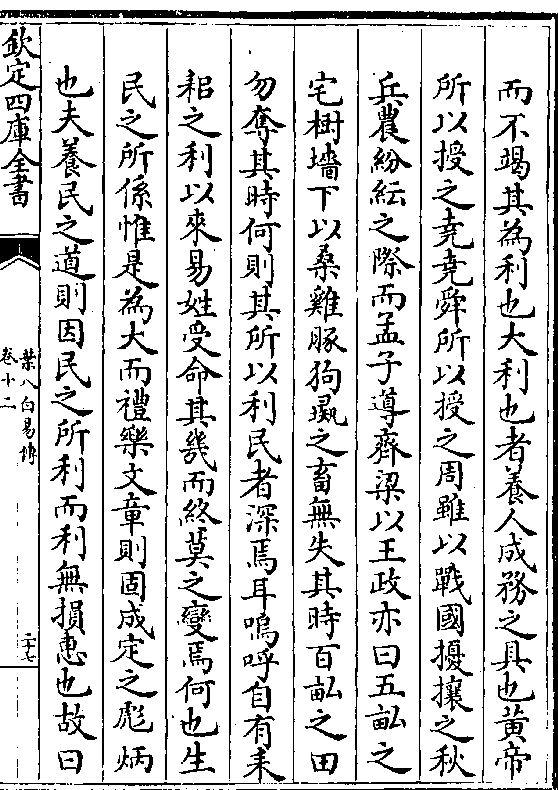 而不竭其為利也大利也者養人成務之具也黄帝
所以授之堯堯舜所以授之周雖以戰國擾攘之秋
兵農紛紜之際而孟子導齊梁以王政亦曰五畝之
宅樹墻下以桑雞豚狗彘之畜無失其時百畝之田
勿奪其時何則其所以利民者深焉耳嗚呼自有耒
耜之利以來易姓受命其幾而終莫之變焉何也生
民之所係惟是為大而禮樂文章則固成定之彪炳
也夫養民之道則因民之所利而利無損惠也故曰
欽定四庫全書
葉八白易傳
卷十二
二十七